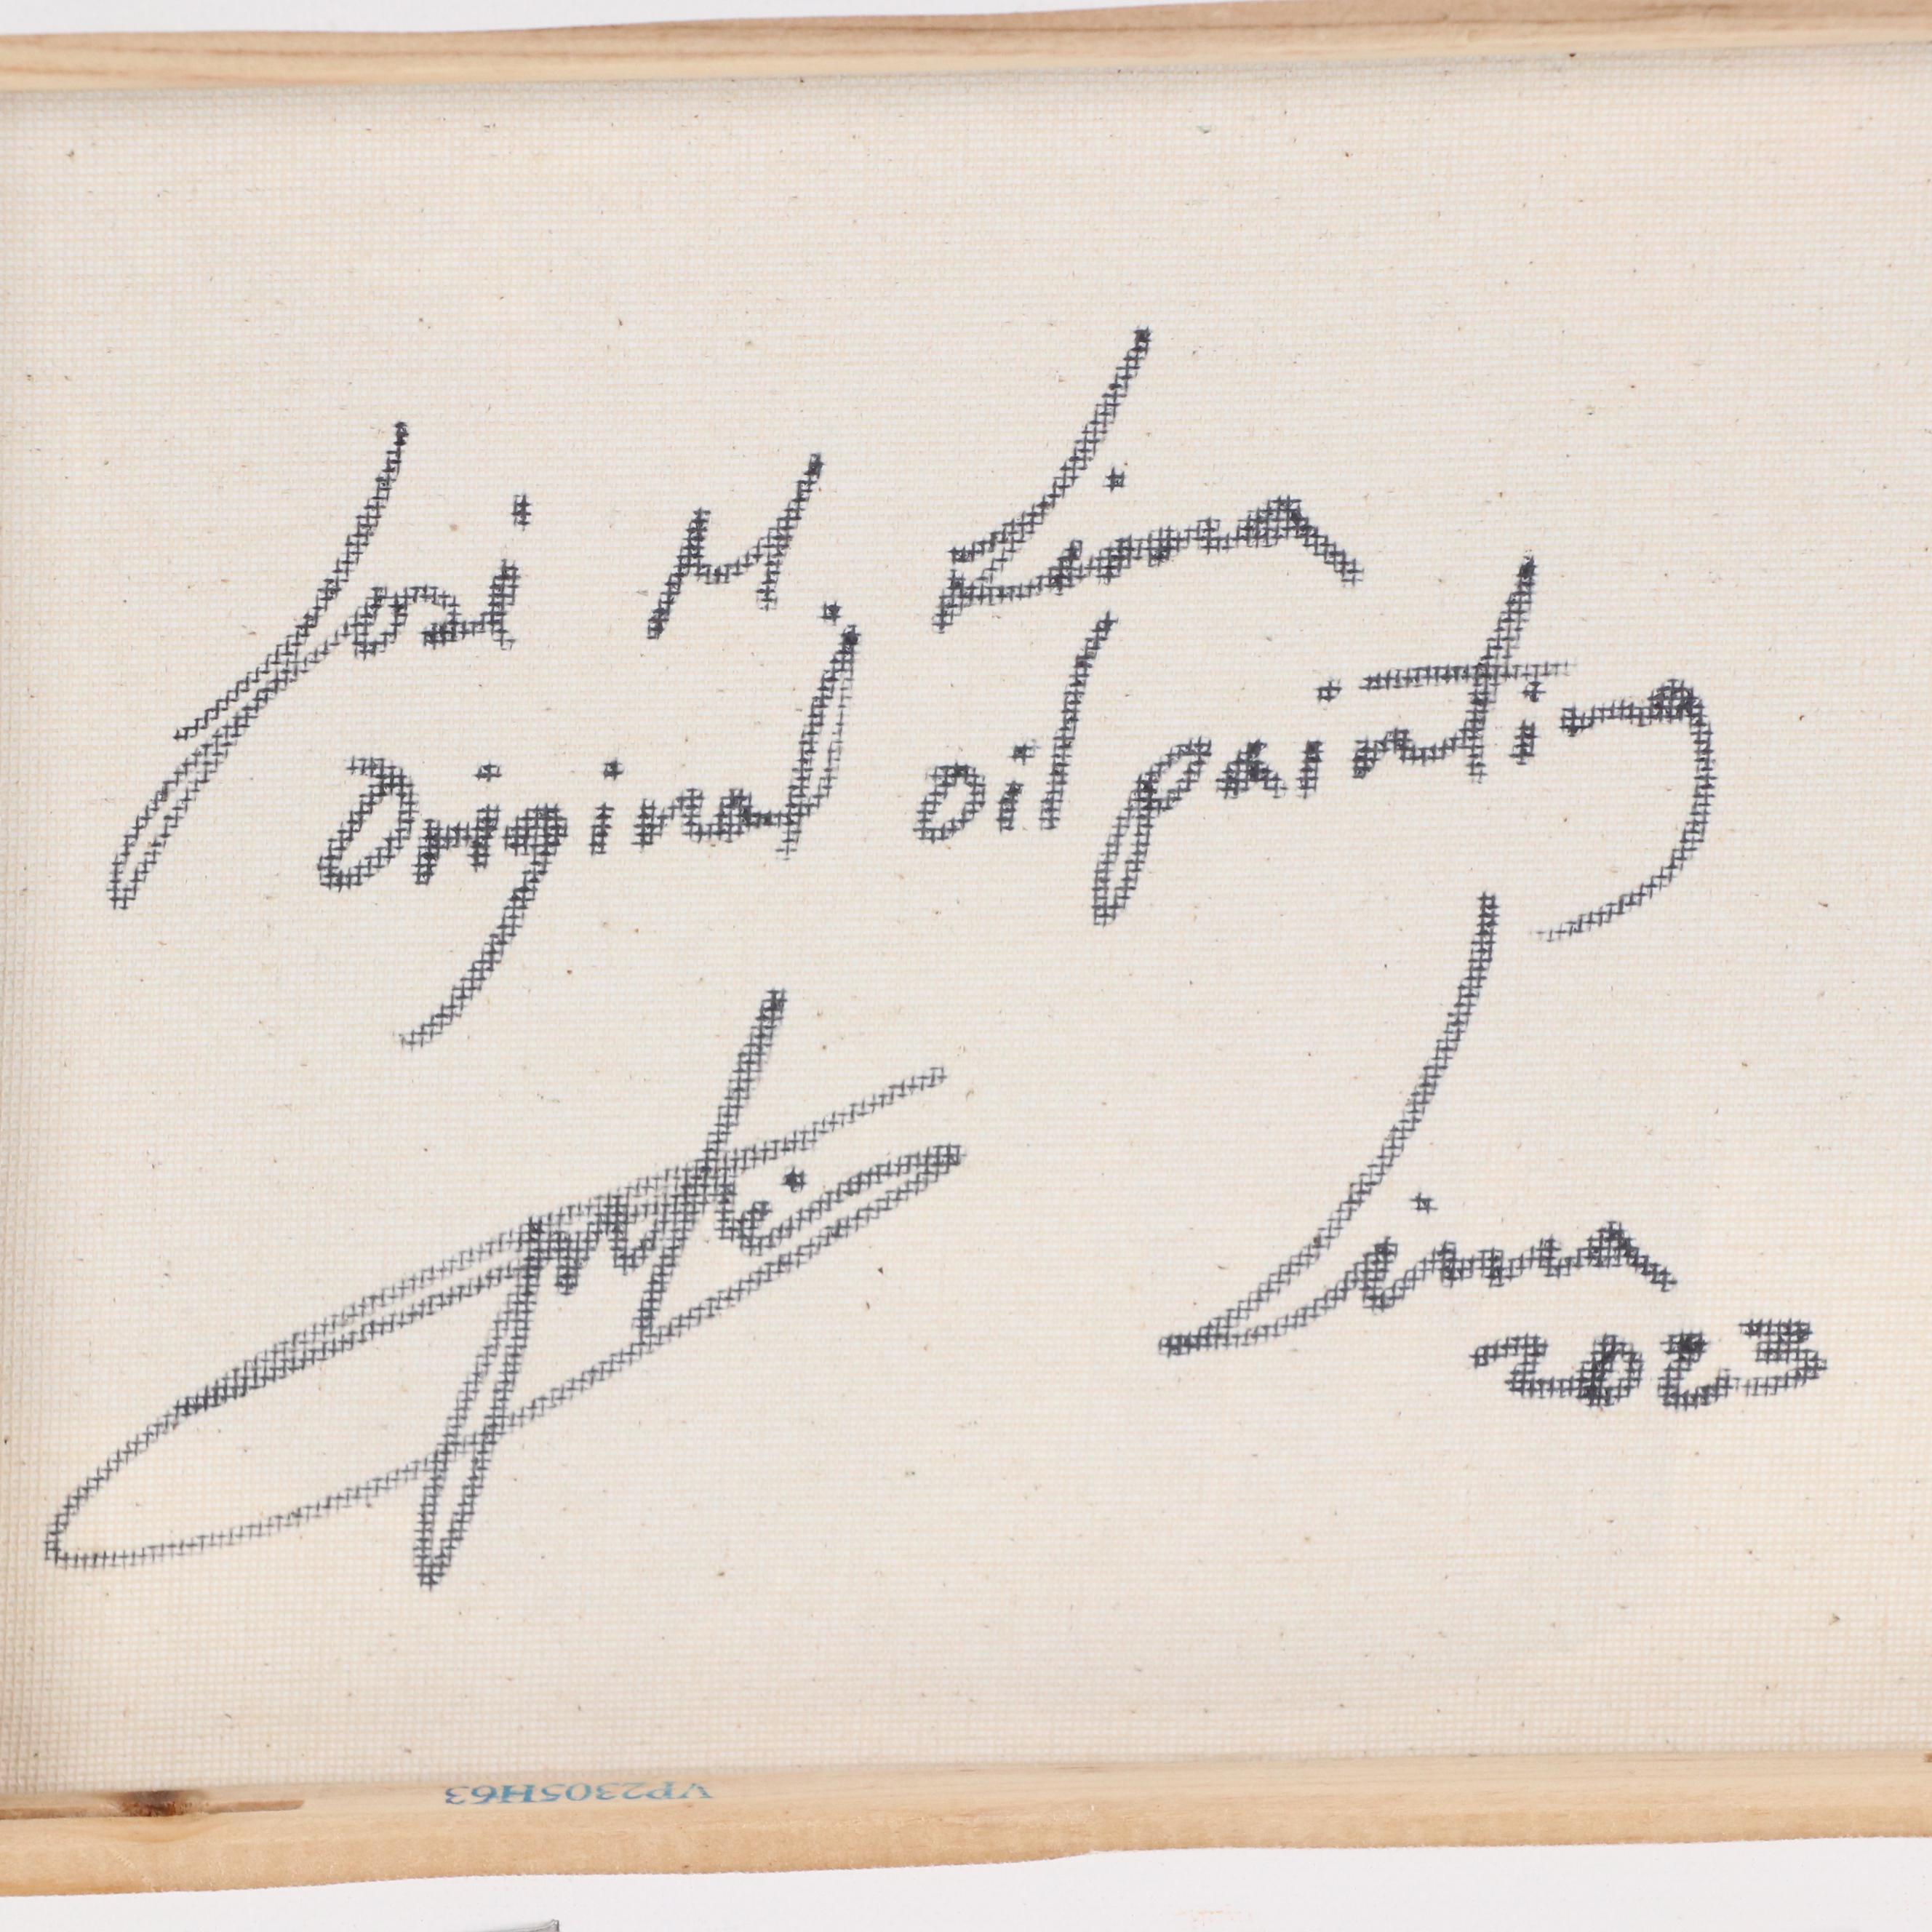 José M Lima
Original oil painting
Lima
2023
VP2305H63